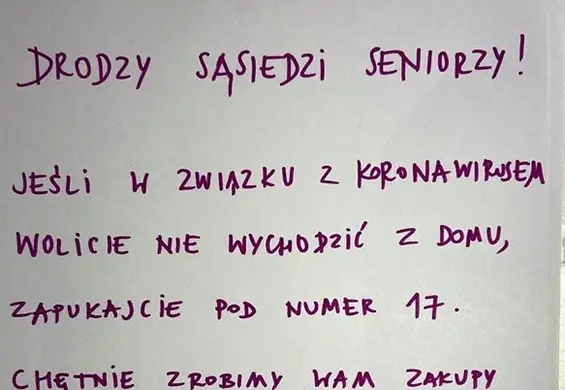 DRODZY SĄSIEDZI SENIORZY!
JEŚLI W ZWIĄZKU Z KORONAWIRUSEM
WOLICIE NIE WYCHODZIĆ Z DOMU,
ZAPUKAJCIE POD NUMER 17.
CHĘTNIE ZROBIMY WAM ZAKUPY